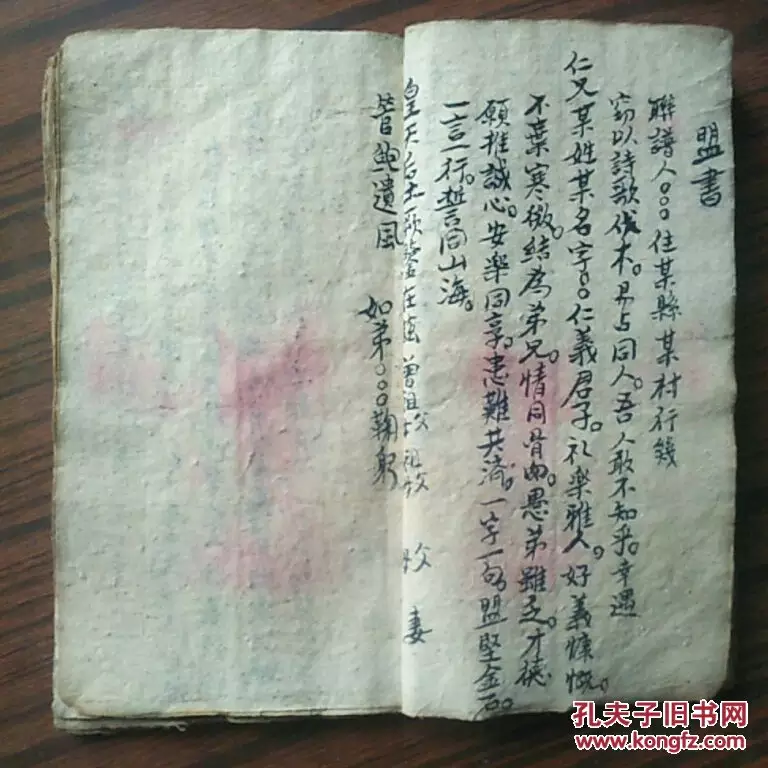 盟書
聯譜人○○○住某縣某村行幾
竊以詩歌伐木。易占同人。吾人敢不知乎。幸遇
仁兄某姓某名字○○仁義君子。礼樂雅人。好義慷慨。
不棄寒微。結為弟兄。情同骨肉。愚弟雖乏才德。
願推誠心。安樂同享。患難共濟。一字一句。盟堅金石。
一言一行。誓同山海。
皇天后土 鑒在茲 曾祖父 祖父 父 妻
管鮑遺風 如弟○○○鞠躬
孔夫子旧书网
www.kongfz.com